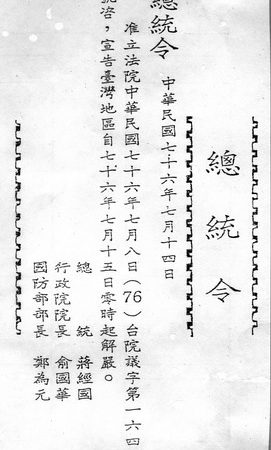 總統令
總統令
中華民國七十六年七月十四日
准立法院中華民國七十六年七月八日(76)台院議字第一六四
咨,宣告臺灣地區自七十六年七月十五日零時起解嚴。
總統 蔣經國
行政院院長 俞國華
國防部部長 鄭為元